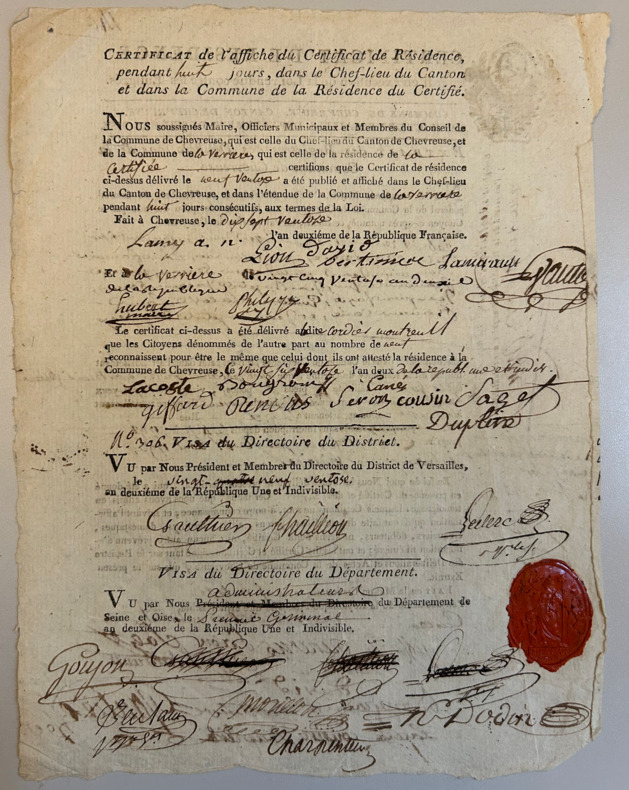 CERTIFICAT de l'affiche du Certificat de Résidence,
pendant huit jours, dans le Chef-lieu du Canton
et dans la Commune de la Résidence du Certifié.
NOUS soussignés Maire, Officiers Municipaux et Membres du Conseil de
la Commune de Chevreuse, qui est celle du Chef-lieu du Canton de Chevreuse, et
de la Commune de la verriere, qui est celle de la résidence de la
certifiée certifions que le Certificat de résidence
ci-dessus délivré le neuf ventose a été publié et affiché dans le Chef-lieu
du Canton de Chevreuse, et dans l'étendue de la Commune de la verriere
pendant huit jours consécutifs, aux termes de la Loi.
Fait à Chevreuse, le dix sept ventose
l'an deuxiéme de la République Française.
Lamy a. n.
Et à la verriere vingt cinq ventose an deuxieme
de la republique
hubert
maire
Le certificat ci-dessus a été délivré à ladite cordier montreuil
que les Citoyens dénommés de l'autre part au nombre de neuf
reconnaissent pour être le même que celui dont ils ont attesté la résidence à la
Commune de Chevreuse, le vingt six ventose l'an deux de la republ. une et indiv.
Lacoste
giffard cousin Saget
N.º 306. VISA du Directoire du District.
VU par Nous Président et Membres du Directoire du District de Versailles,
le vingt neuf ventose
an deuxiéme de la République Une et Indivisible.
Gaulthier Leclerc
VISA du Directoire du Département.
administrateurs
VU par Nous Président et Membres du Directoire du Département de
Seine et Oise, le
an deuxiéme de la République Une et Indivisible.
Goujon
Dodin
Charpentier